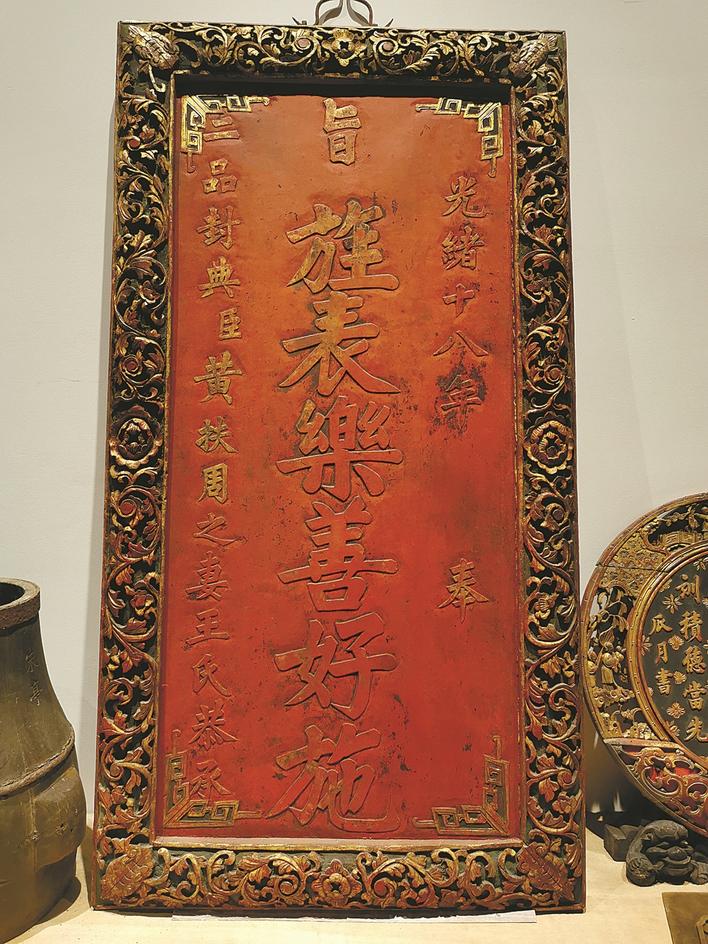 光緒十八年 奉
旨 旌表樂善好施
三品封典臣黃扶周之妻王氏恭承
積德當先
瓜月書